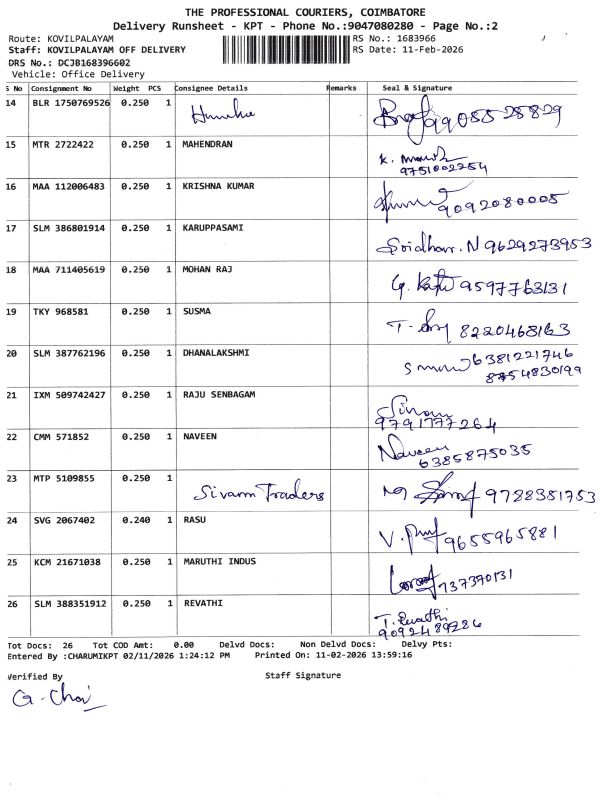 THE PROFESSIONAL COURIERS, COIMBATORE
Delivery Runsheet - KPT - Phone No.:9047080280 - Page No.:2
Route: KOVILPALAYAM RS No.: 1683966
Staff: KOVILPALAYAM OFF DELIVERY RS Date: 11-Feb-2026
DRS No.: DCJB168396602
Vehicle: Office Delivery
S No Consignment No Weight PCS Consignee Details Remarks Seal & Signature
14 BLR 1750769526 0.250 1
15 MTR 2722422 0.250 1 MAHENDRAN
9751002754
16 MAA 112006483 0.250 1 KRISHNA KUMAR
9092080005
17 SLM 386801914 0.250 1 KARUPPASAMI
Sridharr. N 9629273953
18 MAA 711405619 0.250 1 MOHAN RAJ
9597763131
19 TKY 968581 0.250 1 SUSMA
8220468163
20 SLM 387762196 0.250 1 DHANALAKSHMI
6381221746
8754830199
21 IXM 509742427 0.250 1 RAJU SENBAGAM
9791777264
22 CMM 571852 0.250 1 NAVEEN
Naveen
6385875035
23 MTP 5109855 0.250 1
Sivam Traders 9788381753
24 SVG 2067402 0.240 1 RASU
9655965881
25 KCM 21671038 0.250 1 MARUTHI INDUS
26 SLM 388351912 0.250 1 REVATHI
T. Revathi
9092489286
Tot Docs: 26 Tot COD Amt: 0.00 Delvd Docs: Non Delvd Docs: Delvy Pts:
Entered By :CHARUMIKPT 02/11/2026 1:24:12 PM Printed On: 11-02-2026 13:59:16
Verified By Staff Signature